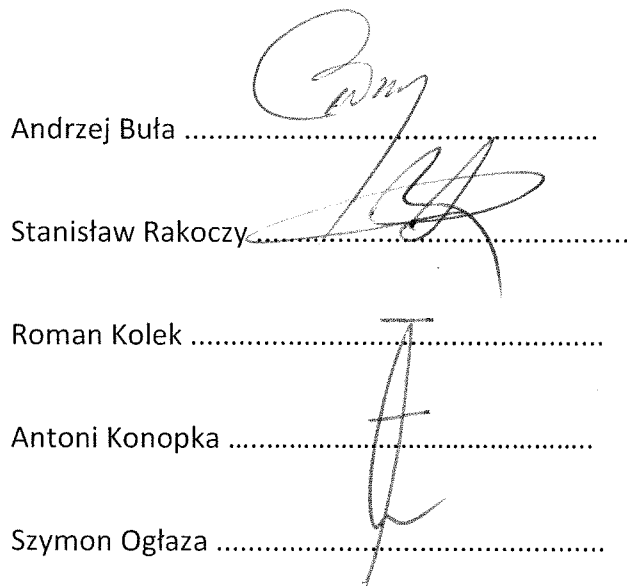 Andrzej Buła ....................................................
Stanisław Rakoczy................................................
Roman Kolek ....................................................
Antoni Konopka ..............................................
Szymon Ogłaza ................................................